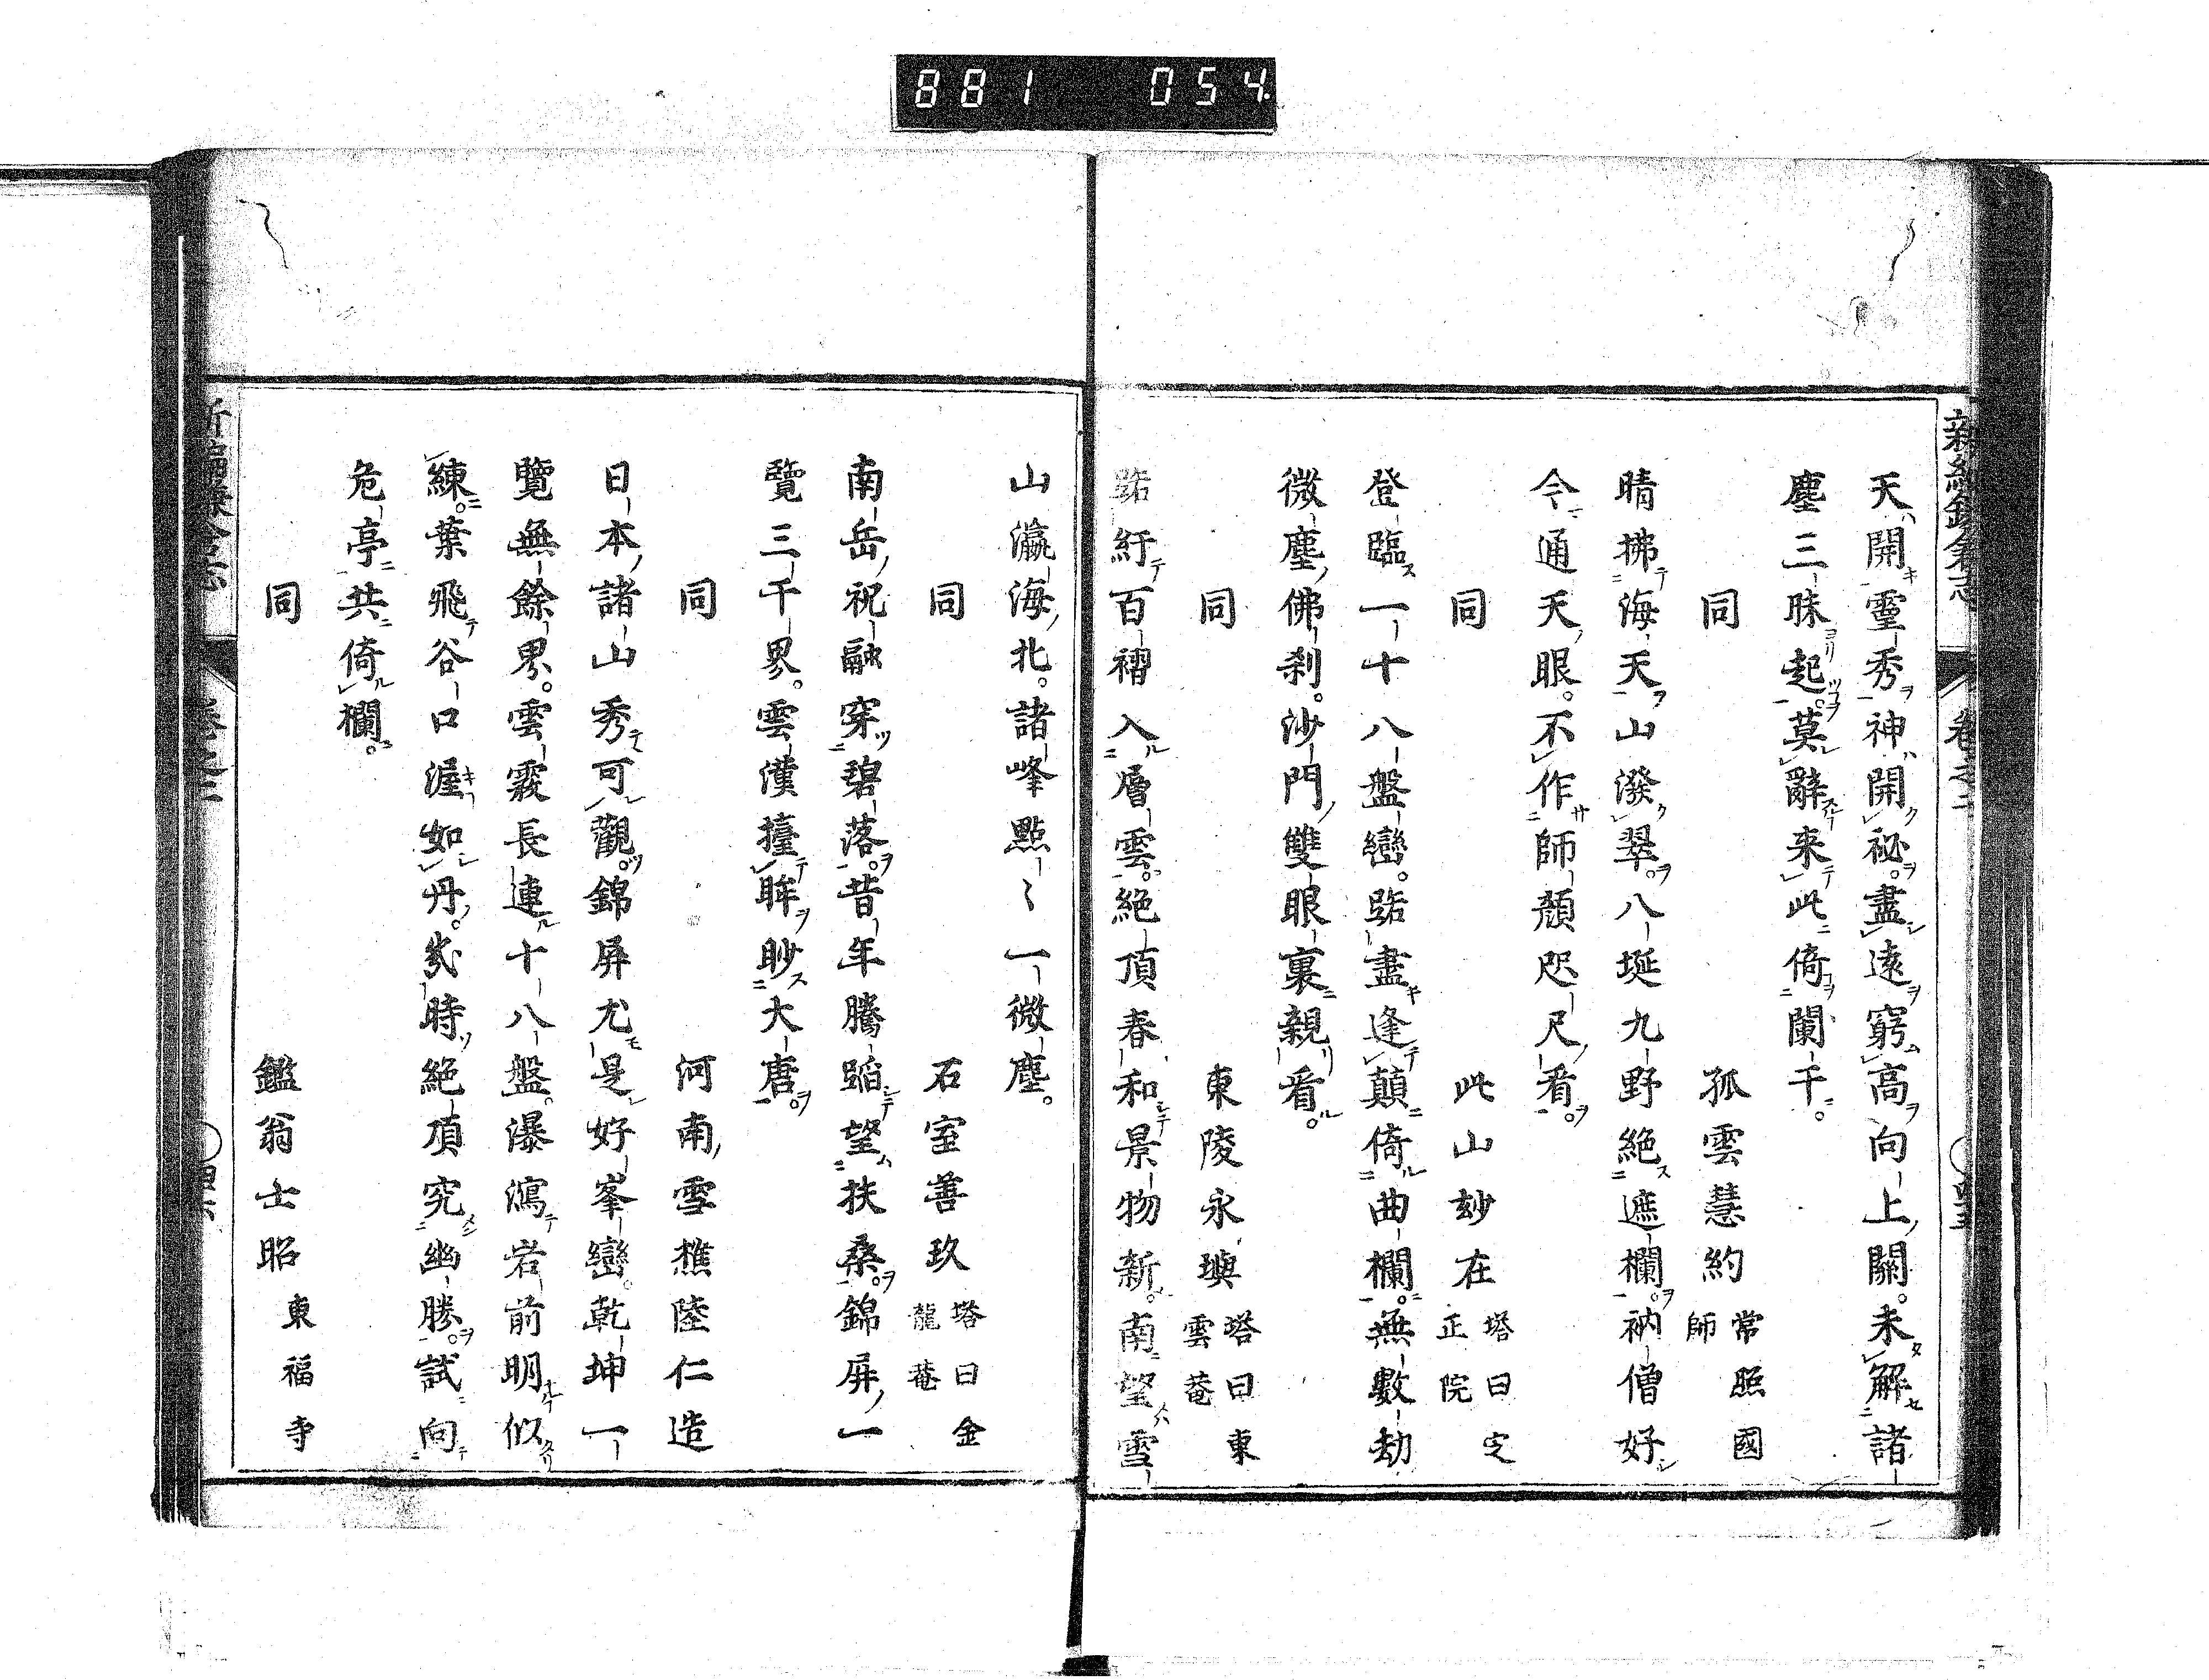 881 054
新編鎌倉志 卷之二 〇四五
天開靈秀神開祕。盡遠窮高向上關。未解諸
塵三昧起。莫辭来此倚闌干。
同 孤雲慧約 常照國師
晴拂海天山潑翠。八埏九野絕遮欄。衲僧好
今通天眼。不作師顏咫尺看。
同 此山妙在 塔曰定正院
登臨一十八盤巒。踏盡逢顛倚曲欄。無數劫
微塵佛刹。沙門雙眼裏親看。
同 東陵永璵 塔曰東雲菴
路紆百褶入層雲。絕頂春和景物新。南望雪
山瀛海北。諸峰點〻一微塵。
同 石室善玖 塔曰金龍菴
南岳祝融穿碧落。昔年騰蹈望扶桑。錦屏一
覽三千界。雲漢擡眸眇大唐。
同 河南雪樵陸仁造
日本諸山秀可觀。錦屏尤是好峯巒。乾坤一
覽無餘界。雲霧長連十八盤。瀑瀉岩前明似
練。葉飛谷口渥如丹。幾時絕頂究幽勝。試向
危亭共倚欄。
同 鑑翁士昭 東福寺
新編鎌倉志 卷之二 〇四六